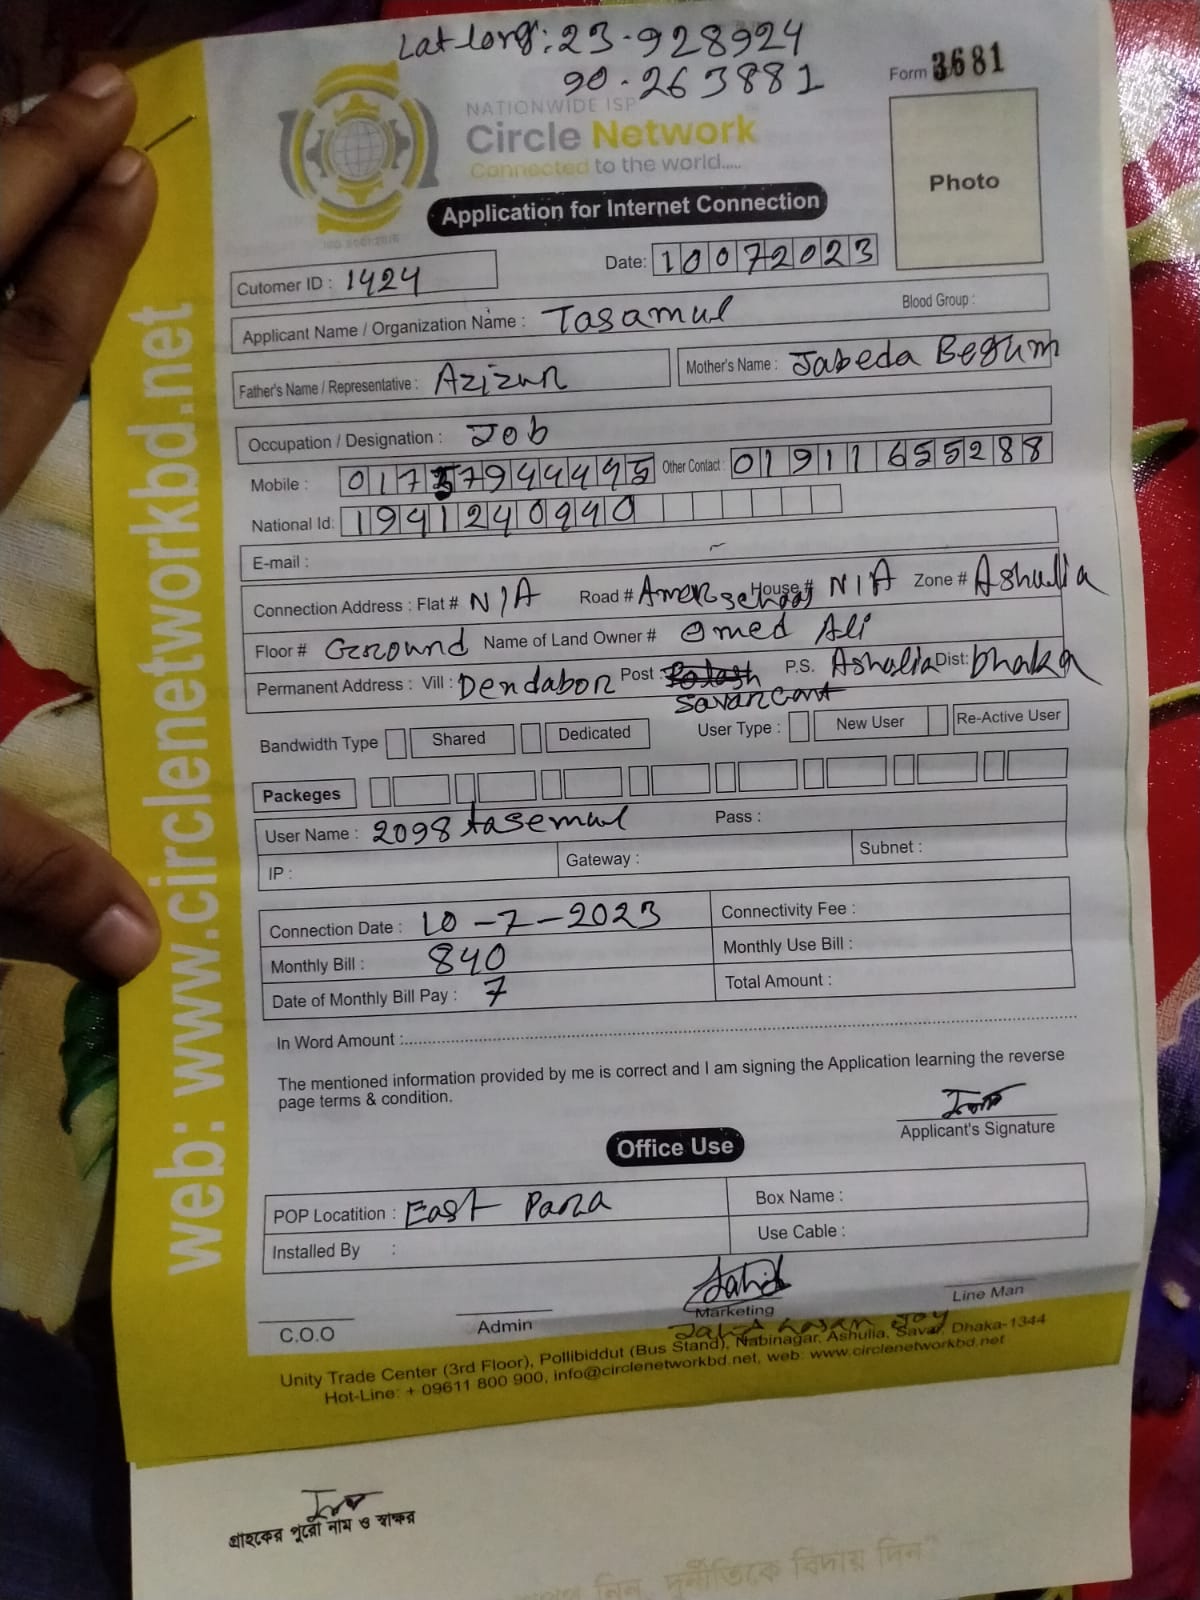 Lat long: 23.928924
90.263881
Form 3681
NATIONWIDE ISP
Circle Network
Connected to the world.....
Photo
Application for Internet Connection
Date: 10072023
Cutomer ID : 1424
Applicant Name / Organization Name : Tasamul
Blood Group :
Father's Name / Representative : Azizur
Mother's Name : Jabeda Begum
Occupation / Designation : Job
Mobile :
Other Contact : 01911655288
National Id: 1941240940
E-mail :
Connection Address : Flat # N/A Road # House # N/A Zone # Ashulia
Floor # Ground Name of Land Owner # Omed Ali
Permanent Address : Vill : Dendabor Post : P.S. Ashulia Dist: Dhaka
Savar Cant
Bandwidth Type Shared Dedicated User Type : New User Re-Active User
Packeges
User Name : 2098tasemul Pass :
IP : Gateway : Subnet :
Connection Date : 10-7-2023 Connectivity Fee :
Monthly Bill : 840 Monthly Use Bill :
Date of Monthly Bill Pay : 7 Total Amount :
In Word Amount :
The mentioned information provided by me is correct and I am signing the Application learning the reverse
page terms & condition.
Applicant's Signature
Office Use
POP Locatition : East Para Box Name :
Installed By : Use Cable :
Jahid
C.O.O Admin Marketing Line Man
Unity Trade Center (3rd Floor), Pollibiddut (Bus Stand), Nabinagar, Ashulia, Savar, Dhaka-1344
Hot-Line: + 09611 800 900, info@circlenetworkbd.net, web: www.circlenetworkbd.net
web: www.circlenetworkbd.net
গ্রাহকের পুরো নাম ও স্বাক্ষর
নিন, দুর্নীতিকে বিদায় দিন"